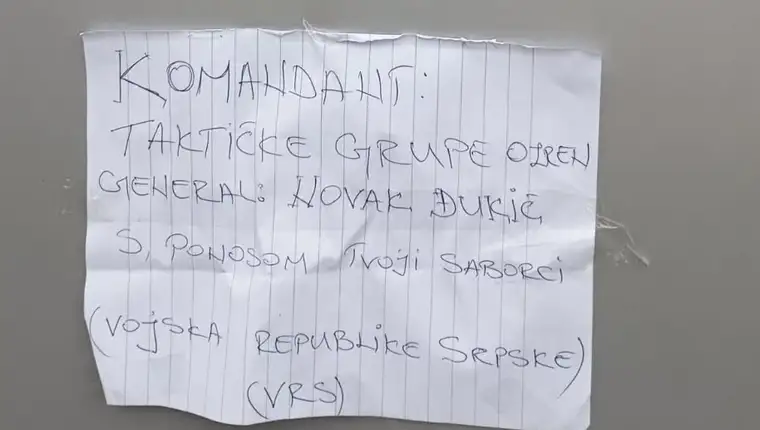 KOMANDANT:
TAKTIČKE GRUPE OZREN
GENERAL: NOVAK ĐUKIĆ
S, PONOSOM TVOJI SABORCI
(VOJSKA REPUBLIKE SRPSKE)
(VRS)